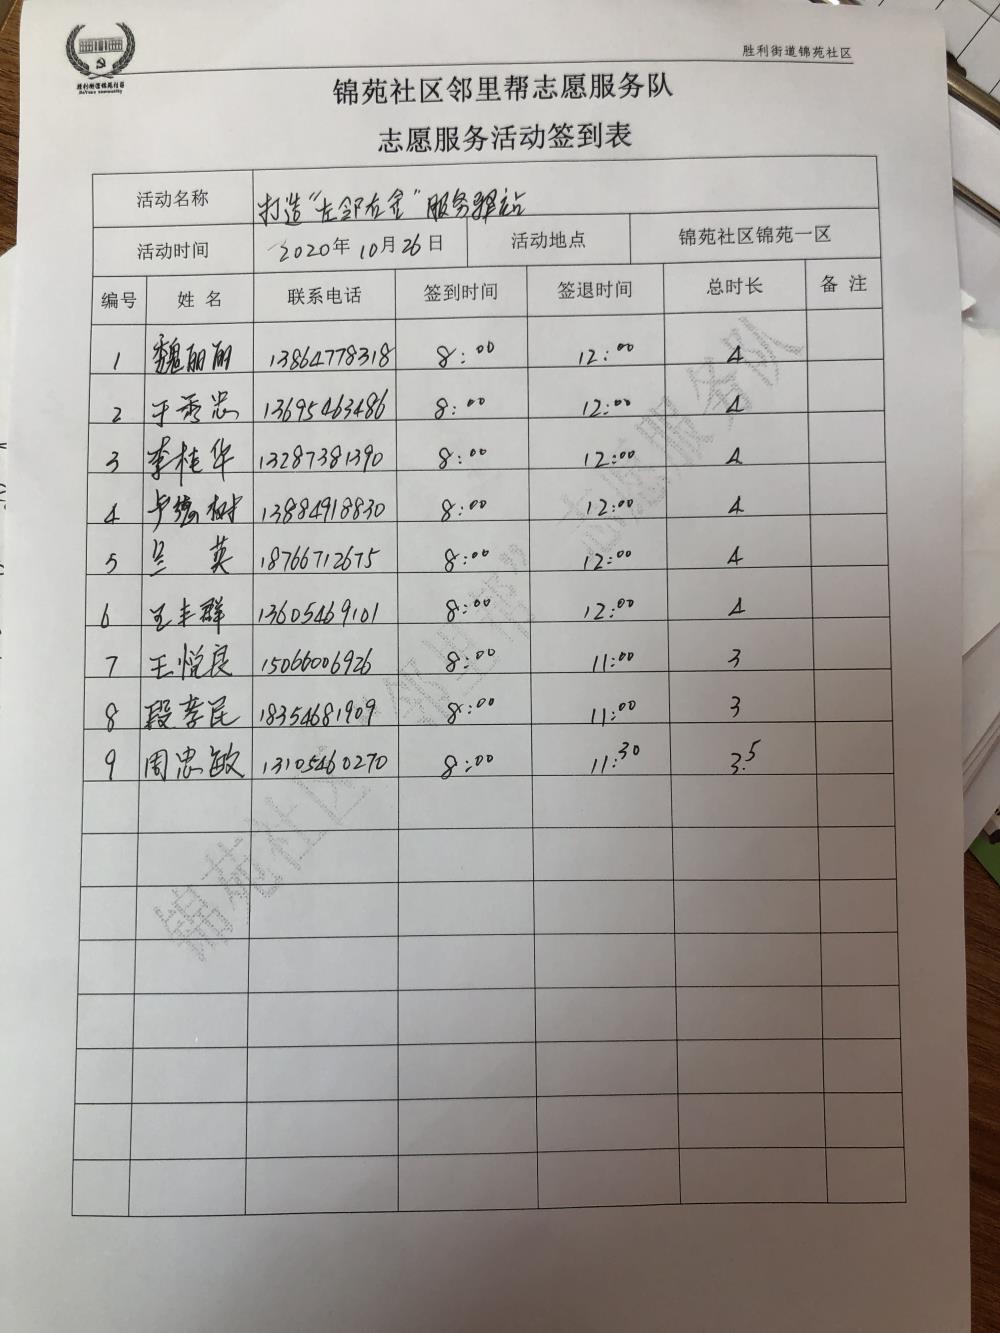 胜利街道锦苑社区
胜利街道锦苑社区
锦苑社区邻里帮志愿服务队
志愿服务活动签到表
活动名称 打造“左邻右舍”服务驿站
活动时间 2020年10月26日 活动地点 锦苑社区锦苑一区
编号 姓 名 联系电话 签到时间 签退时间 总时长 备 注
1 魏丽丽 13864778318 8:00 12:00 4
2 于秀忠 13695463486 8:00 12:00 4
3 李桂华 13287381390 8:00 12:00 4
4 卢德树 13884918830 8:00 12:00 4
5 兰英 18766712675 8:00 12:00 4
6 王丰群 13605469101 8:00 12:00 4
7 王悦良 15066006926 8:00 11:00 3
8 段孝民 18354681909 8:00 11:00 3
9 周忠敏 13105460270 8:00 11:30 3.5
锦苑社区“邻里帮”志愿服务队